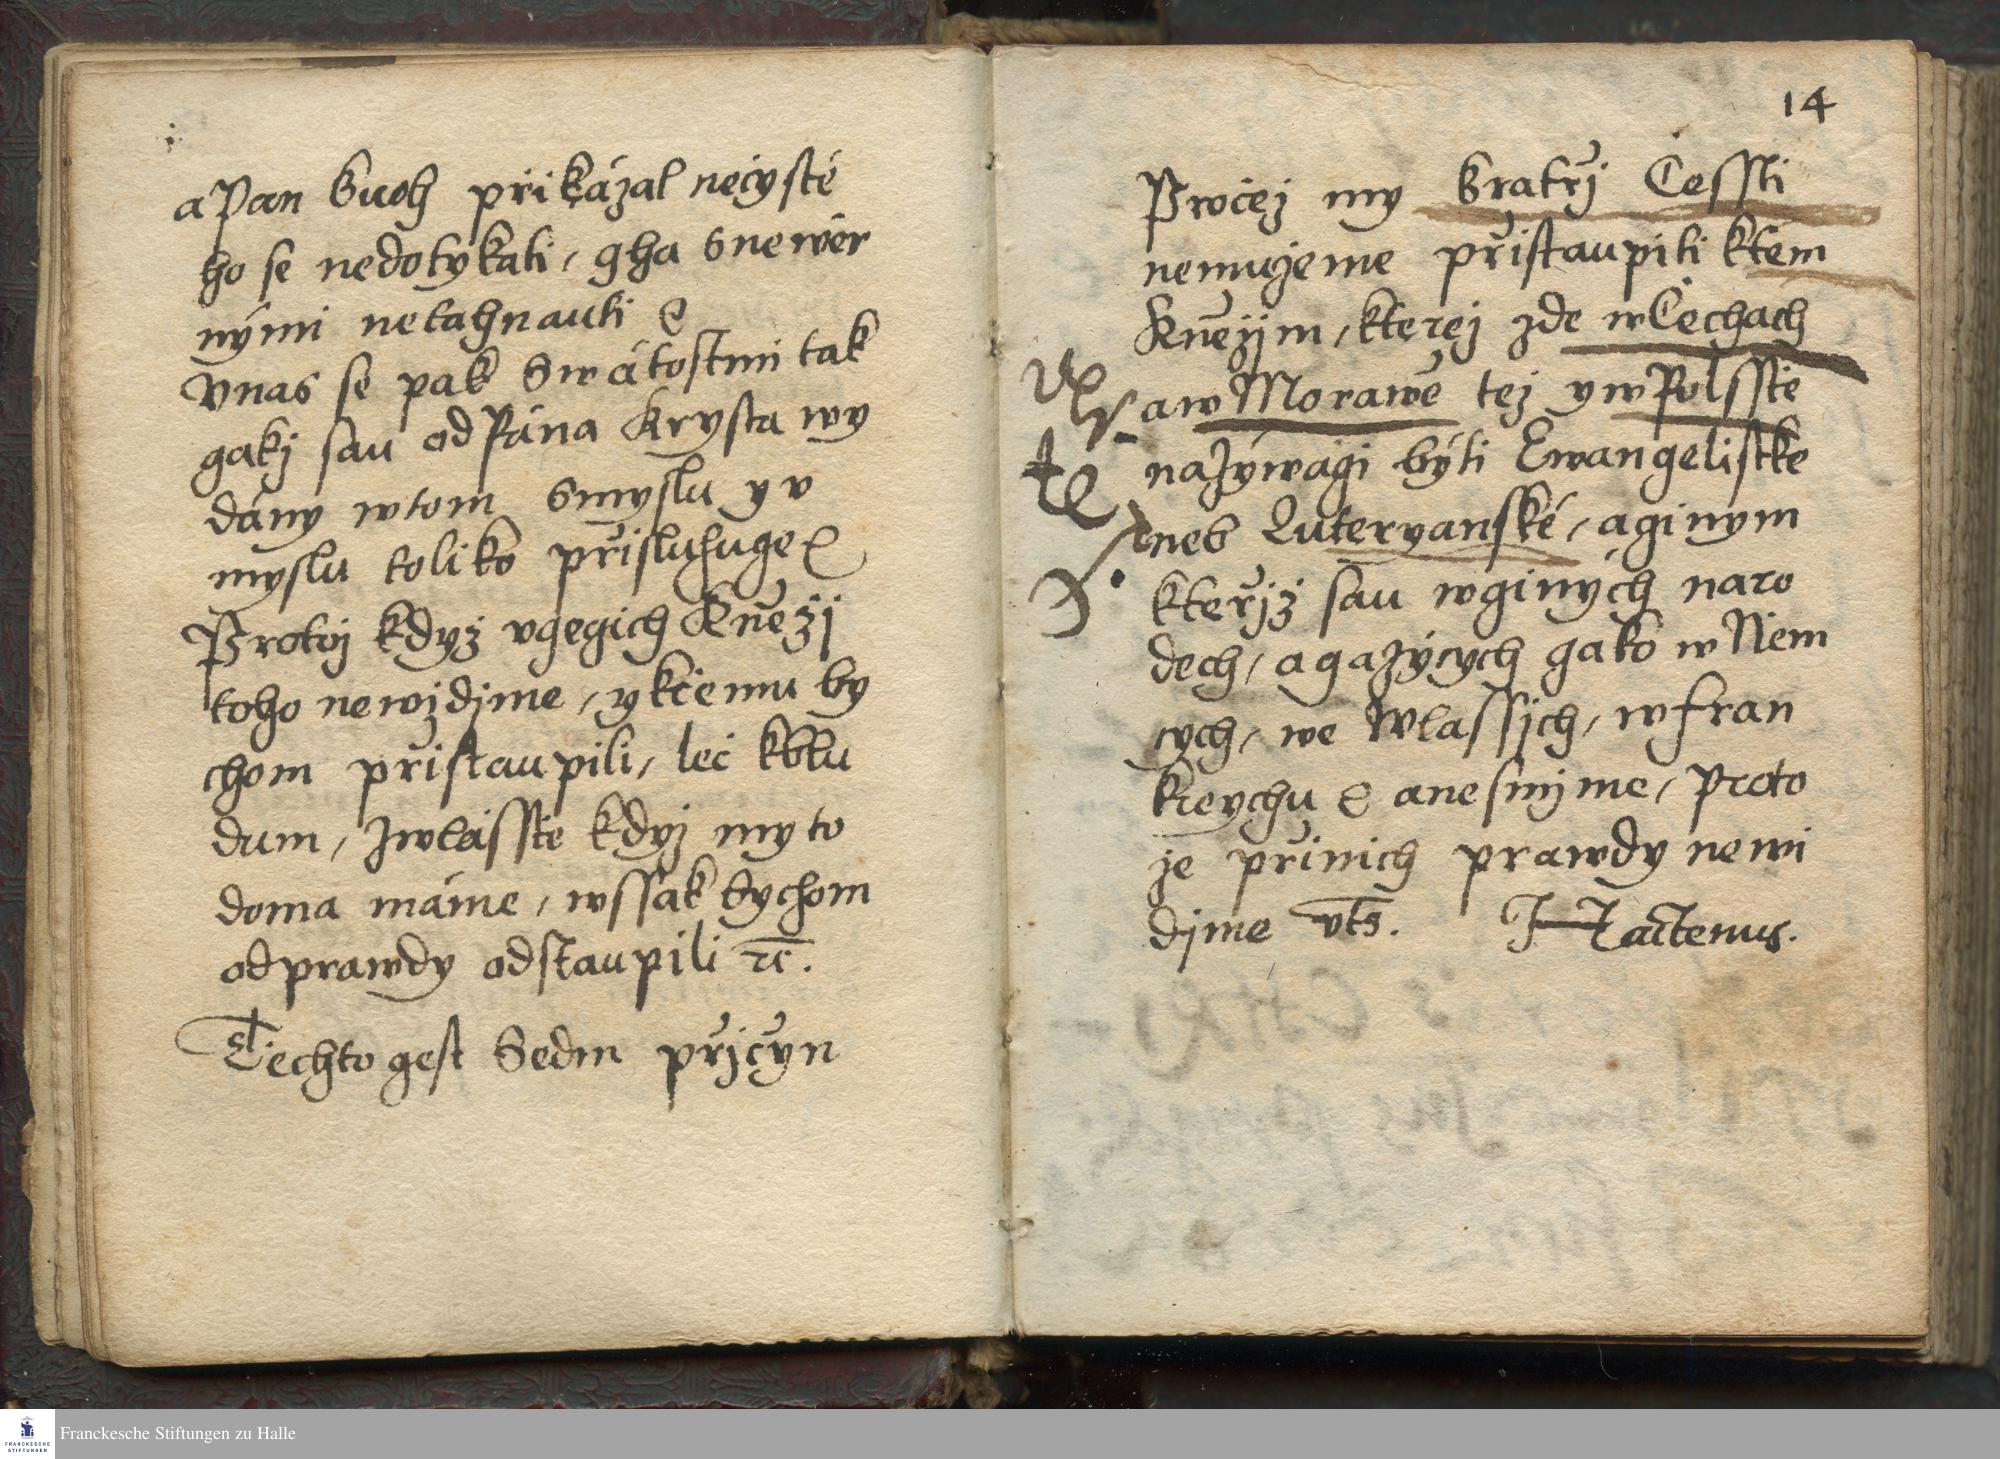 a Pan Buoh přikázal nečysté
ho se nedotykati, gha s newěr
nými netahnauti &
V nas se pak Swátostmi tak
gakž sau od Pána Krysta wy
dány w tom Smyslu y v
myslu toliko přisluhuge &
Protož když v gegich Kněžj
toho newjdjme, y k čemu by
chom přistaupili, leč k blu
dum, Zwlásstě když my to
doma máme, wssak bychom
od prawdy odstaupili ꝛc.
Těchto gest Sedm přjčyn
14
Pročež my Bratřj Čessti
nemužeme přistaupiti k tem
Kněžjm, kteřj zde w Čechach
a w Morawě též y w Polsstě
nazýwagi býti Ewangelistke
neb Luteryanské, a giným
kteřjž sau w giných naro
dech, a gazýcych gako w Něm
cych, we Wlassjch, w Fran
kreychu & a nesmjme, proto
že při nich prawdy newi
djme vts. J Lactenus.
Franckesche Stiftungen zu Halle